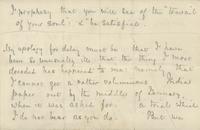 I prophesy that you will see of the "travail
of your soul: & be satisfied.
My apology for delay must be that I have
been so unusually ill that the thing I most
decided has happened to me: namely that
I cannot get a rather voluminous India
paper out by the middle of January,
when it was asked for. a trial which
I do not bear as you do. But we